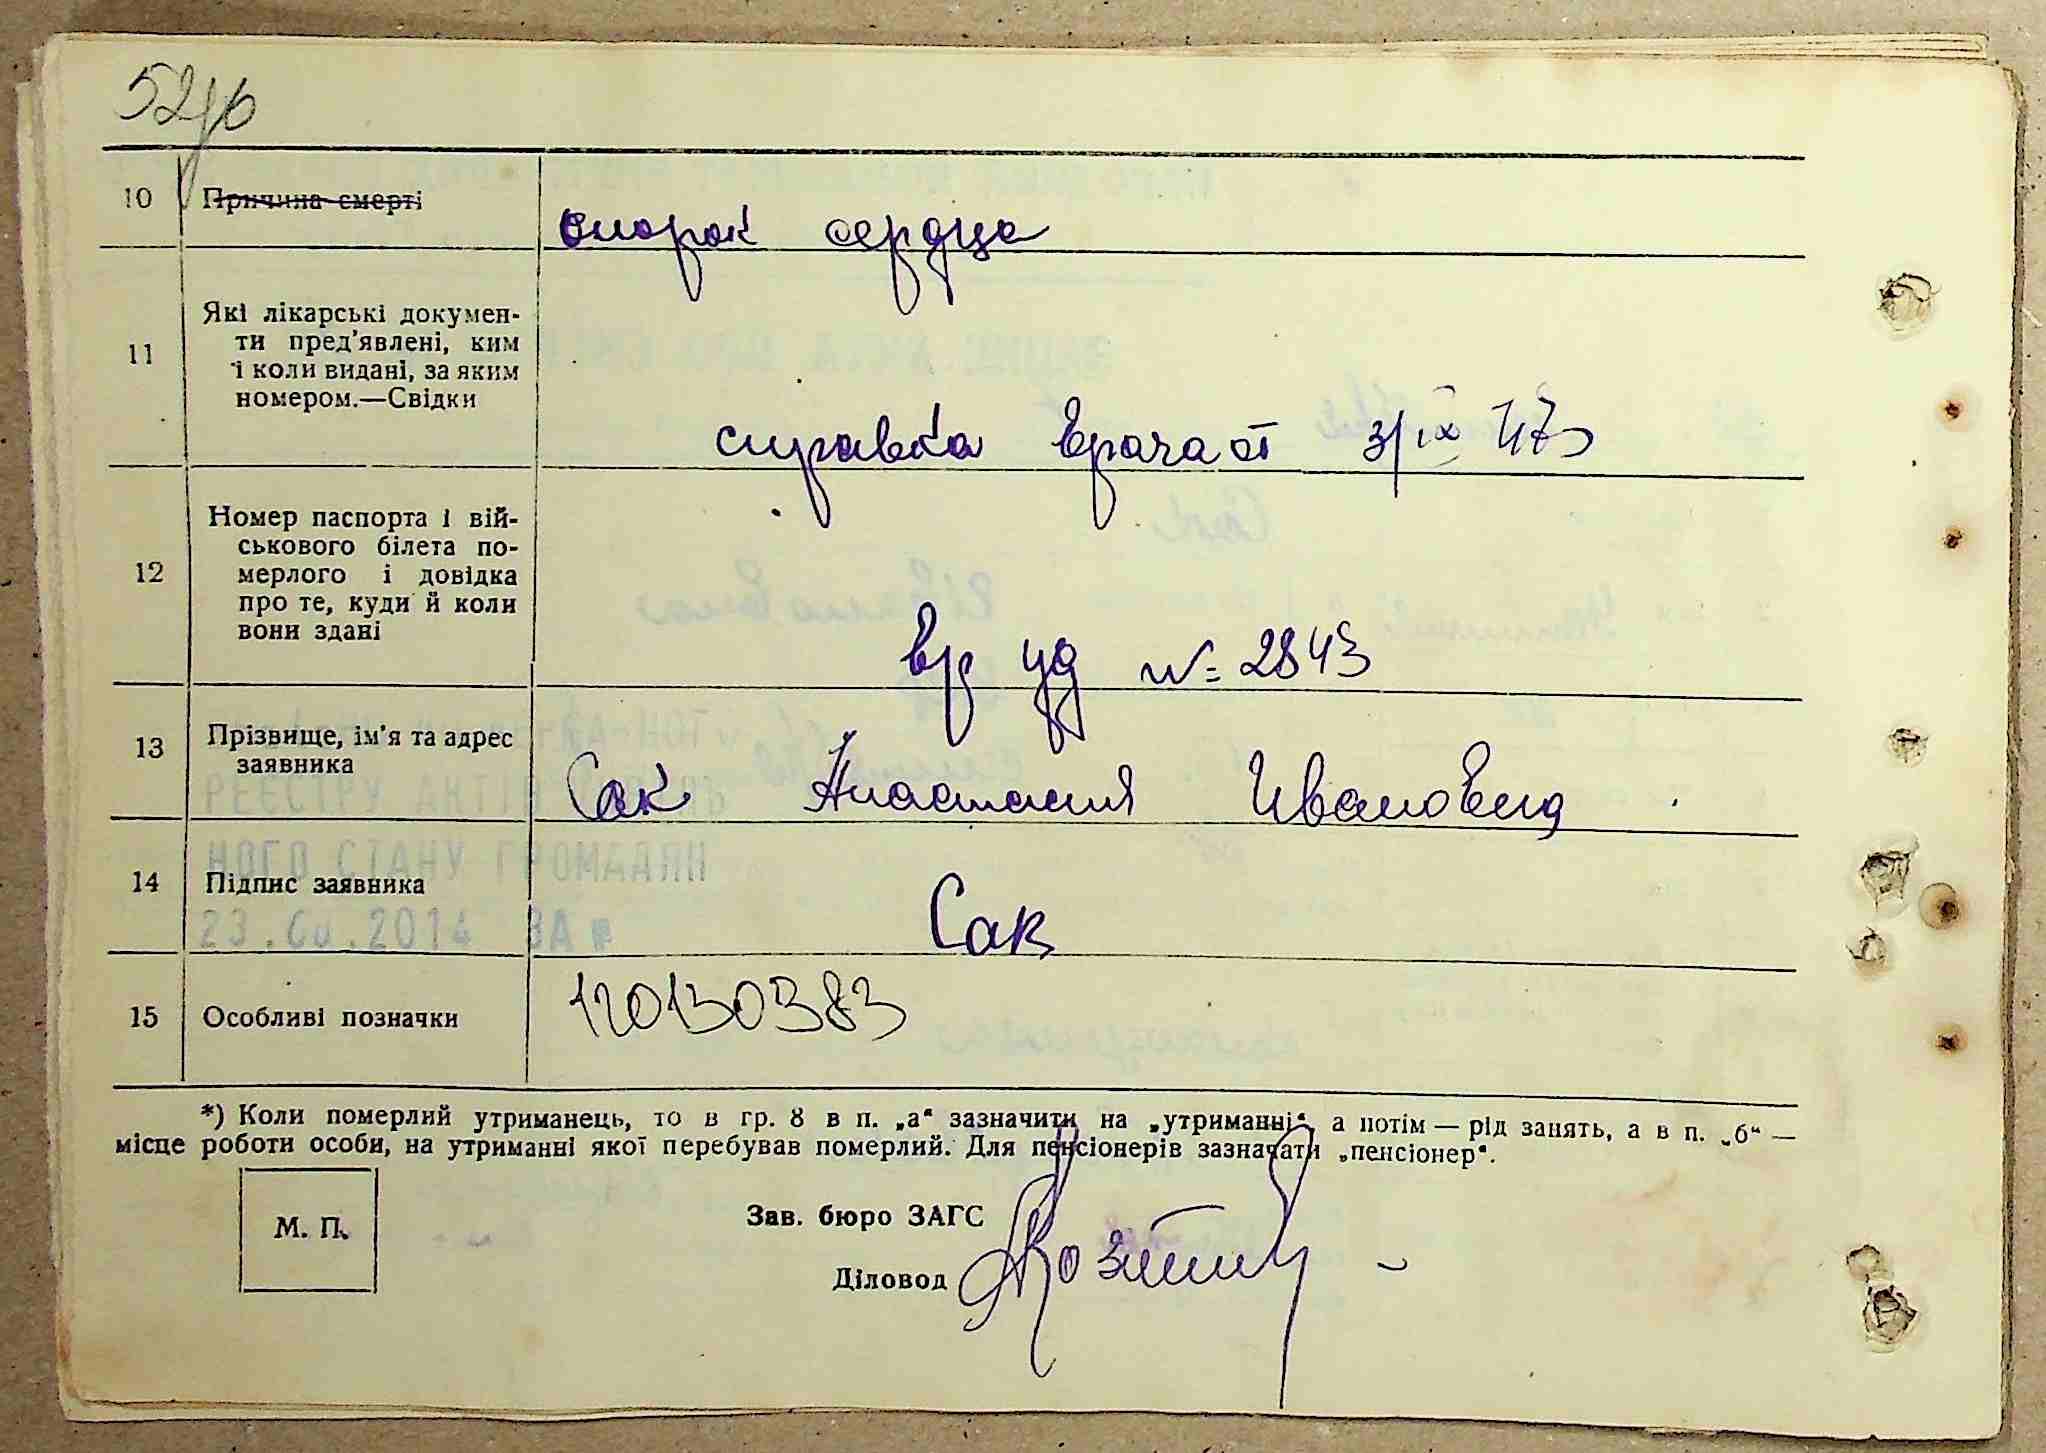 52
10 Причина смерті
порок сердца
11 Які лікарські докумен-
ти пред'явлені, ким
і коли видані, за яким
номером.—Свідки
справка врача от 3/IX 47г
12 Номер паспорта і вій-
ськового білета по-
мерлого і довідка
про те, куди й коли
вони здані
вр уд №=2843
13 Прізвище, ім'я та адрес
заявника
Сак Анастасия Ивановна
РЕЄСТРУ АКТІВ
14 Підпис заявника
Сак
НОГО СТАНУ ГРОМАДЯН
15 Особливі позначки
120130383
*) Коли померлий утриманець, то в гр. 8 в п. „а“ зазначити на „утриманні“, а потім — рід занять, а в п. „б“ —
місце роботи особи, на утриманні якої перебував померлий. Для пенсіонерів зазначати „пенсіонер“.
М. П.
Зав. бюро ЗАГС
Діловод